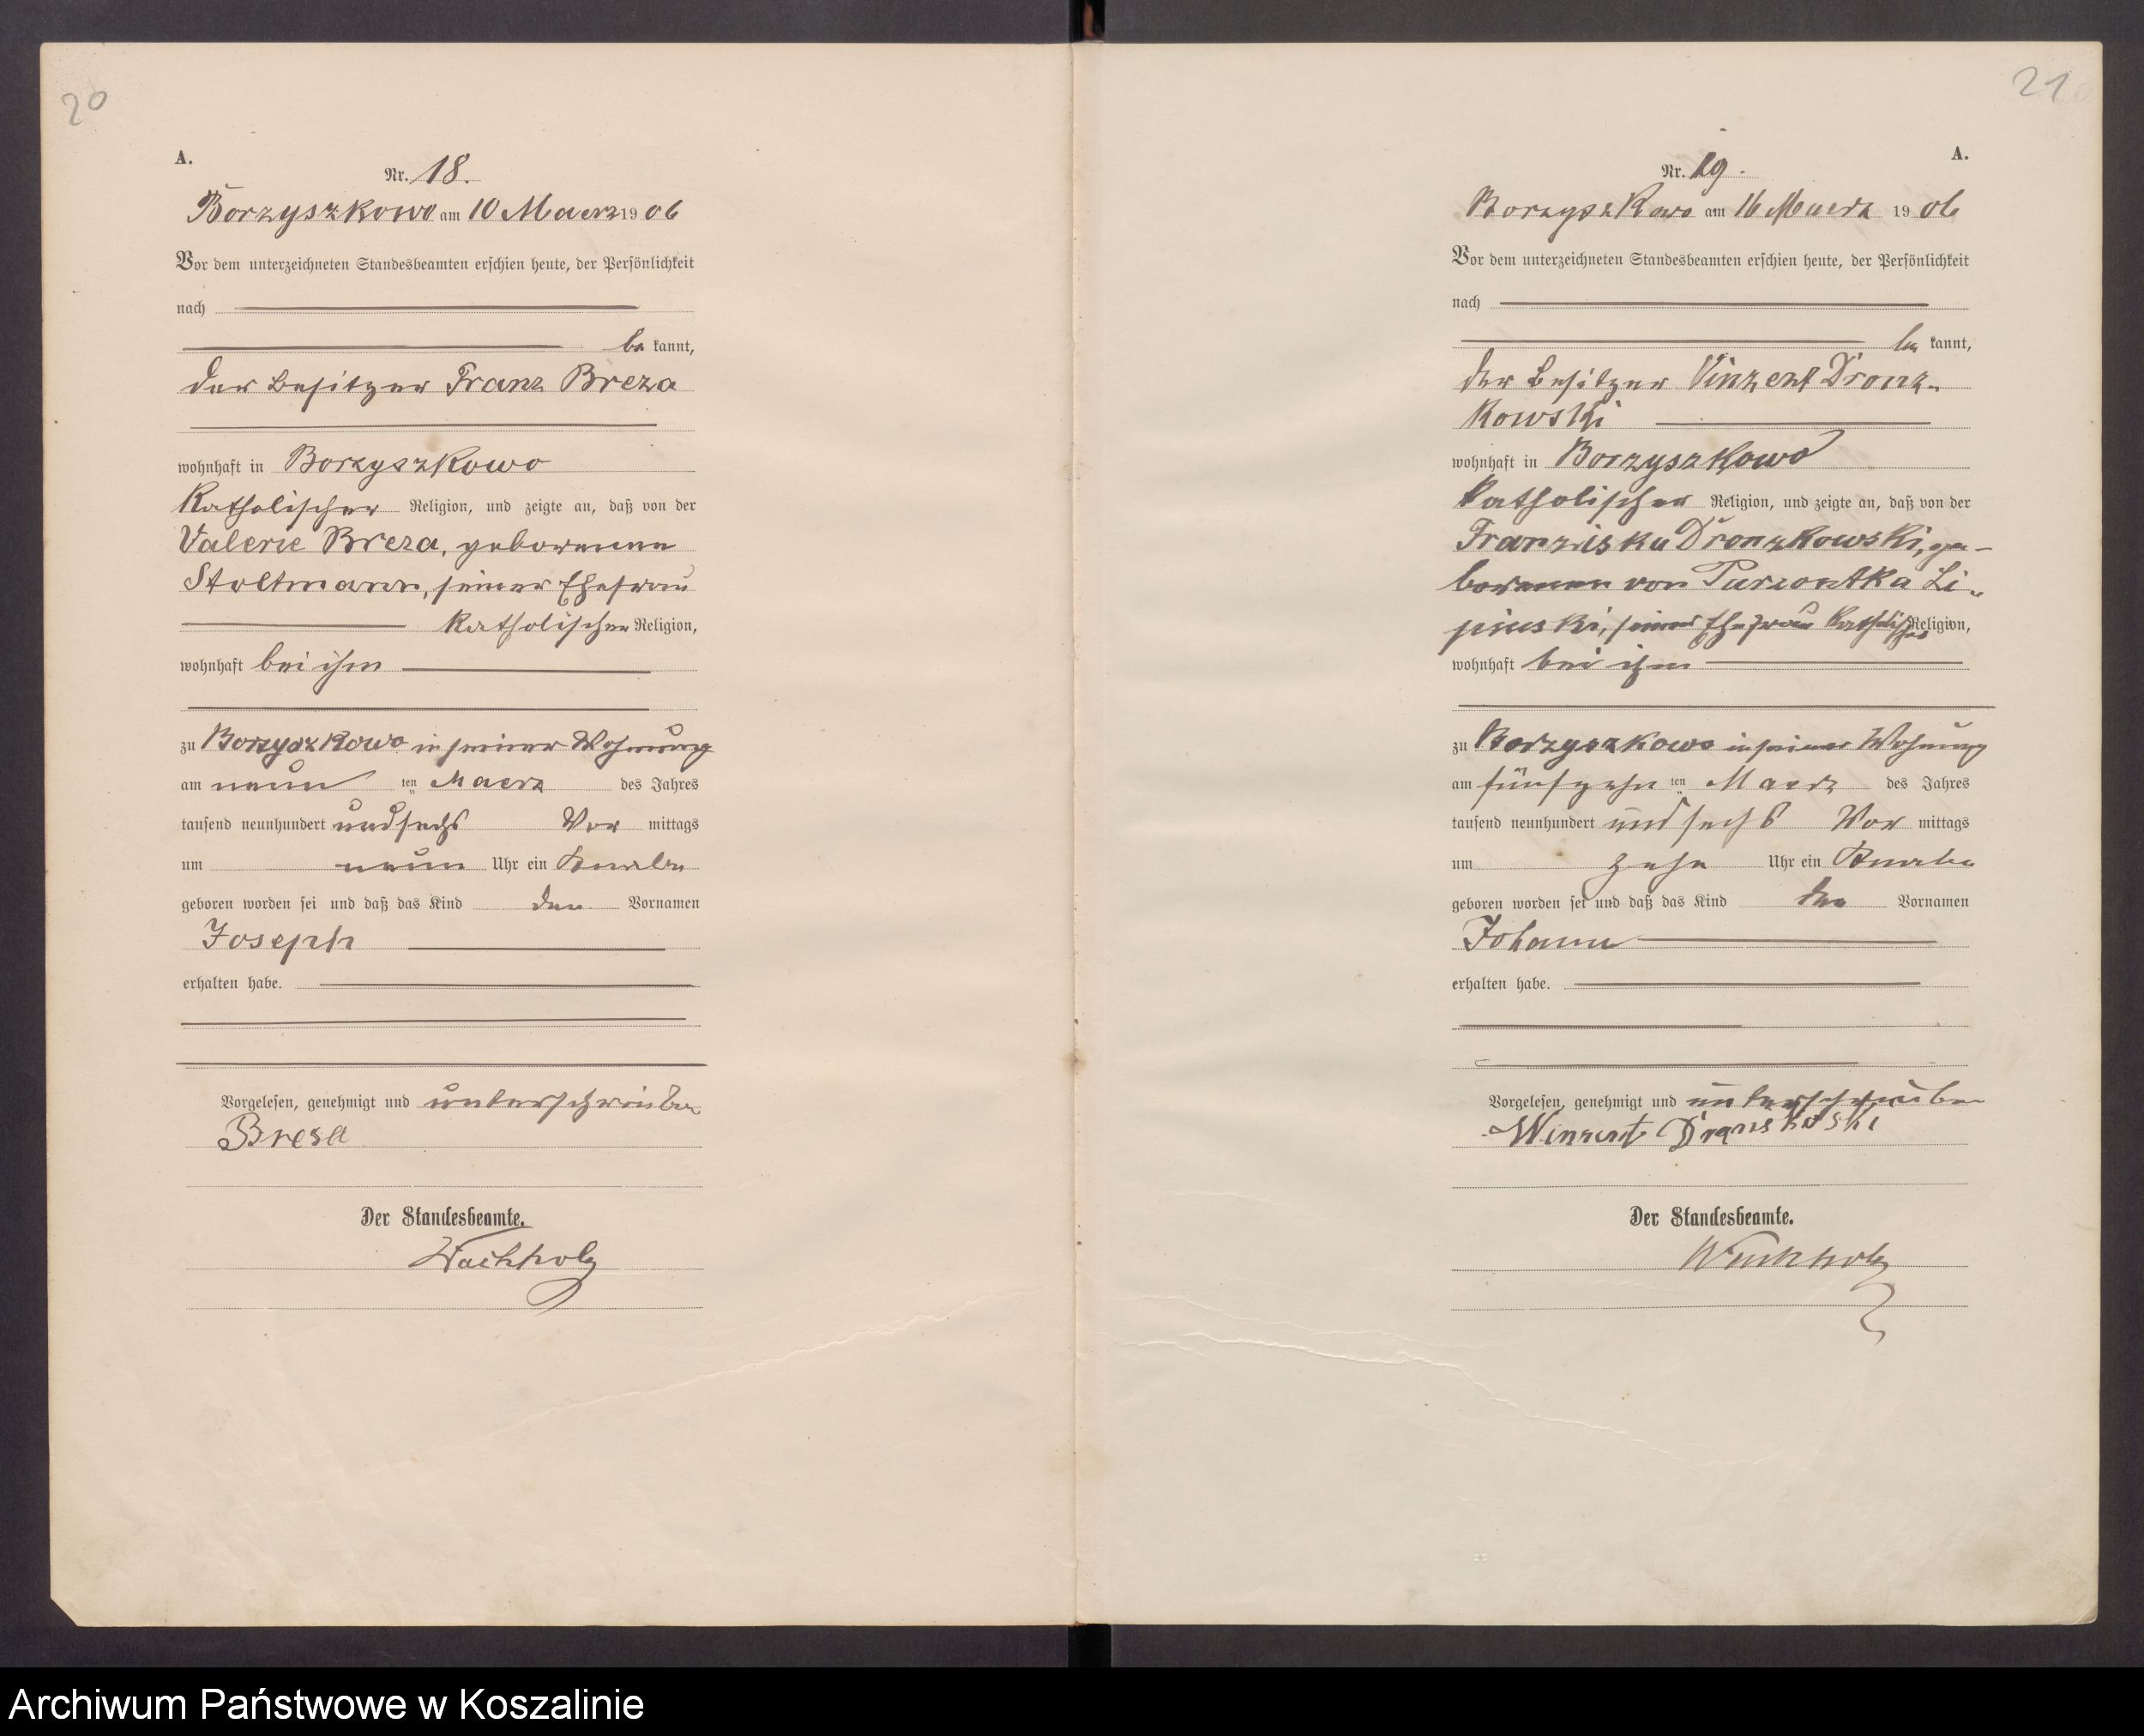 20
A.
Nr. 18.
Borzyszkowo am 10 Maerz 1906
Vor dem unterzeichneten Standesbeamten erschien heute, der Persönlichkeit
nach
be kannt,
der Besitzer Franz Breza
wohnhaft in Borzyszkowo
Katholischer Religion, und zeigte an, daß von der
Valerie Breza, geborenen
Stoltmann, seiner Ehefrau
Katholischer Religion,
wohnhaft bei ihm
zu Borzyszkowo in seiner Wohnung
am neun ten Maerz des Jahres
tausend neunhundert und sechs Vor mittags
um neun Uhr ein Knabe
geboren worden sei und daß das Kind den Vornamen
Joseph
erhalten habe.
Vorgelesen, genehmigt und unterschrieben
Bresa
Der Standesbeamte.
Wachholz
21
A.
Nr. 19.
Borzyszkowo am 16 Maerz 1906
Vor dem unterzeichneten Standesbeamten erschien heute, der Persönlichkeit
nach
be kannt,
der Besitzer Vinzent Dronz-
kowski
wohnhaft in Borzyszkowo
katholischer Religion, und zeigte an, daß von der
Franziska Dronzkowski, ge-
borenen von Li-
pinski, seiner Ehefrau katholischer Religion,
wohnhaft bei ihm
zu Borzyszkowo in seiner Wohnung
am fünfzehn ten Maerz des Jahres
tausend neunhundert und sechs Vor mittags
um zehn Uhr ein Knabe
geboren worden sei und daß das Kind den Vornamen
Johann
erhalten habe.
Vorgelesen, genehmigt und unterschrieben
Winzent
Der Standesbeamte.
Wachholz
Archiwum Państwowe w Koszalinie